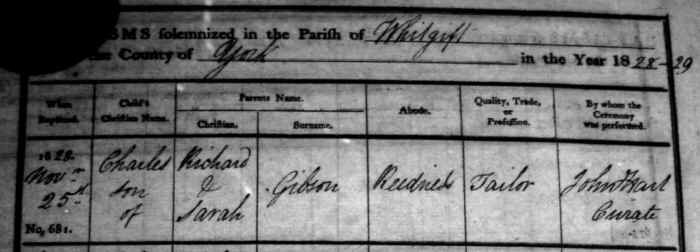 BMS solemnized in the Parish of Whitgift
County of York in the Year 1828-29
When Baptized.
Child's Christian Name.
Parents Name.
Christian.
Surname.
Abode.
Quality, Trade, or Profession.
By whom the Ceremony was performed.
1828.
Novr
25th
No. 681.
Charles
son
of
Richard
&
Sarah
Gibson
Reedness
Tailor
John Hart
Curate